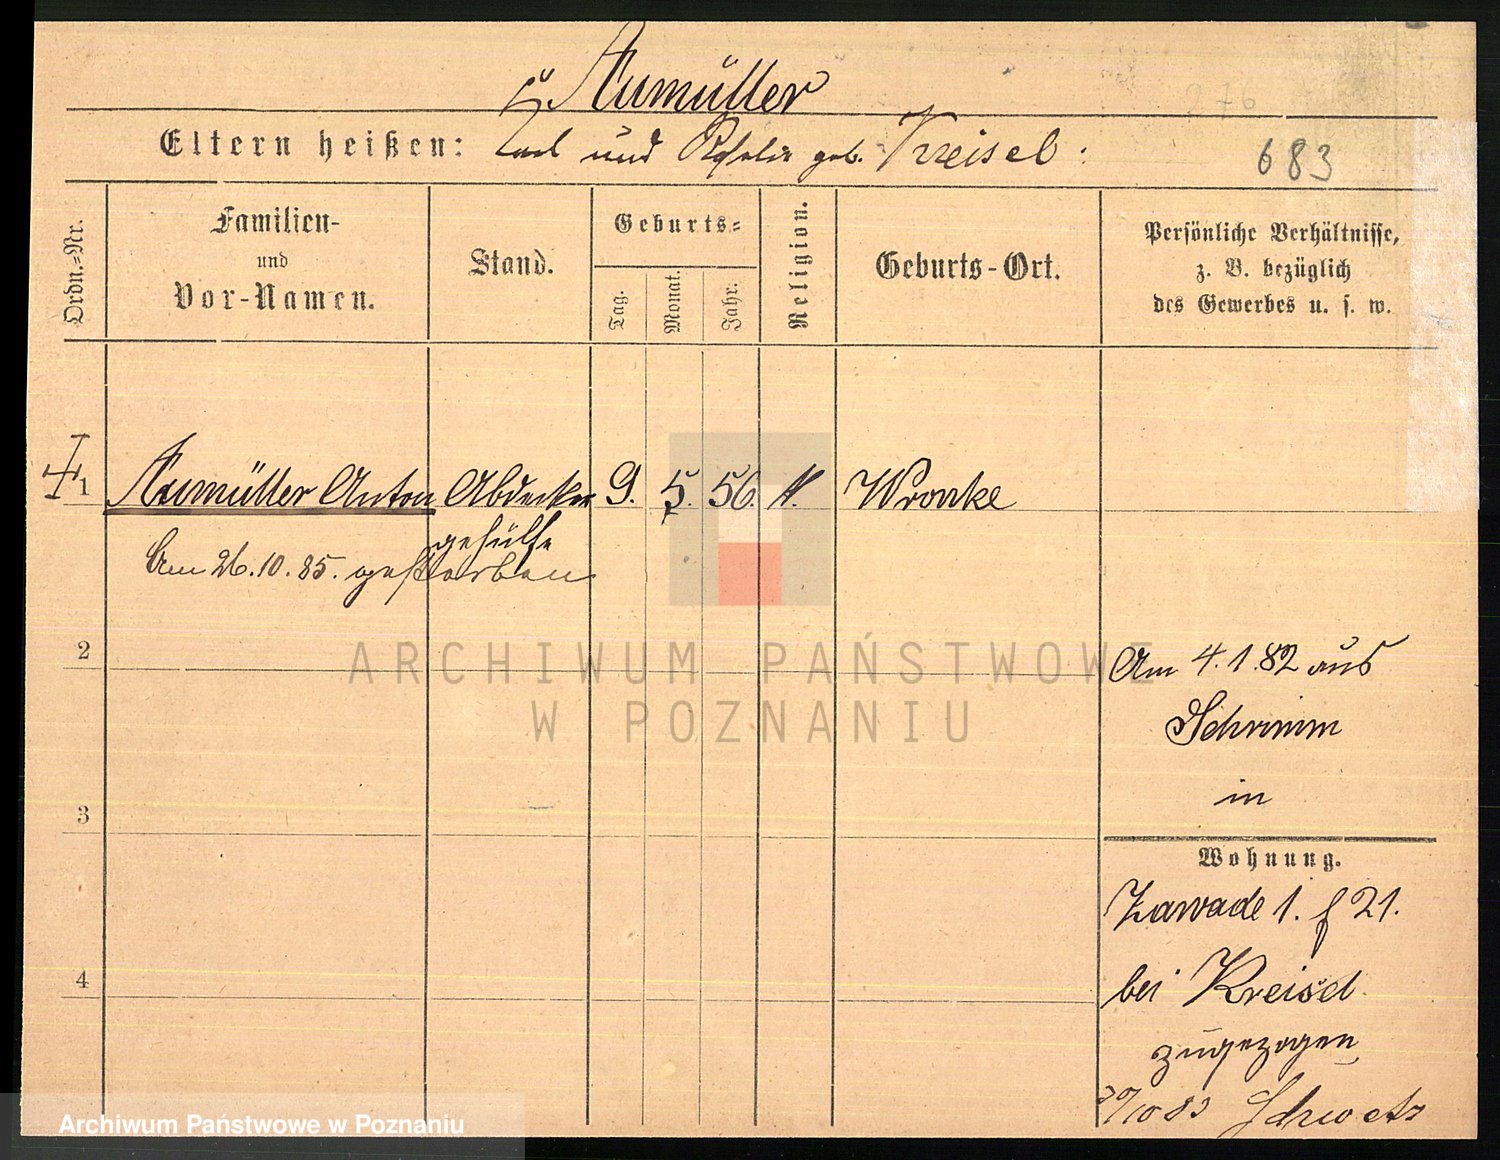 Aumüller
276
Eltern heißen: Carl und Rosalie geb. Kreisel.
683
Ordn.-Nr.
Familien-
und
Vor-Namen.
Stand.
Geburts-
Tag.
Monat.
Jahr.
Religion.
Geburts-Ort.
Persönliche Verhältnisse,
z. B. bezüglich
des Gewerbes u. s. w.
1 Aumüller Anton Abdecker 9. 5. 56. k. Wronke
gehülfe
Am 26.10.85. gestorben
2
Am 4.1.82 aus
Schrimm
in
3
Wohnung.
Zawade 1. f 21.
4
bei Kreisel
zugezogen
30/10 83 Schwetz
ARCHIWUM PAŃSTWOWE
W POZNANIU
Archiwum Państwowe w Poznaniu